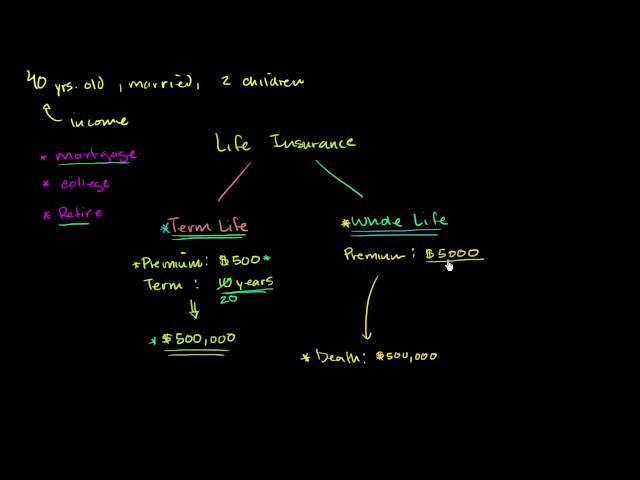 40 yrs. old, married, 2 children
income
* mortgage
* college
* Retire
Life Insurance
*Term Life
*Premium: $500*
Term: 10 years
20
* $500,000
*Whole Life
Premium: $5000
* Death: $500,000